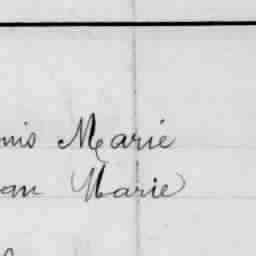 nis Marie
an Marie